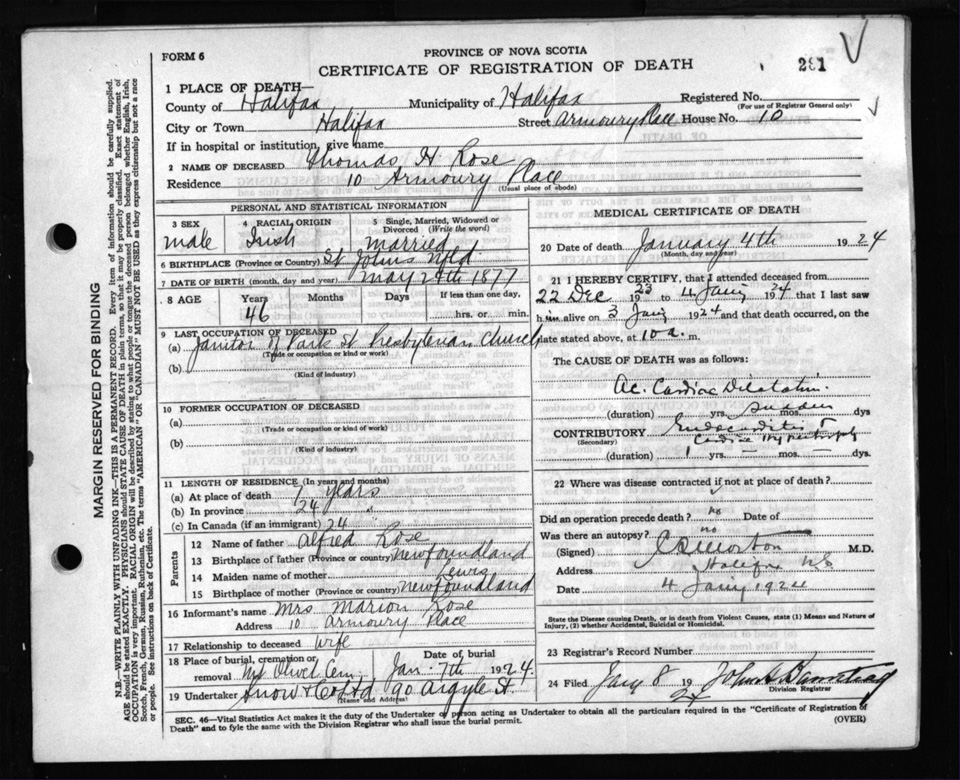 FORM 6
PROVINCE OF NOVA SCOTIA
CERTIFICATE OF REGISTRATION OF DEATH
281
1 PLACE OF DEATH—
County of Halifax Municipality of Halifax Registered No.
(For use of Registrar General only)
City or Town Halifax Street Armoury Place House No. 10
If in hospital or institution, give name
2 NAME OF DECEASED Thomas H Rose
Residence 10 Armoury Place
(Usual place of abode)
PERSONAL AND STATISTICAL INFORMATION
3 SEX 4 RACIAL ORIGIN 5 Single, Married, Widowed or Divorced (Write the word)
male Irish married
6 BIRTHPLACE (Province or Country) St Johns Nfld
7 DATE OF BIRTH (month, day and year) May 24th 1877
8 AGE Years Months Days If less than one day,
46 hrs. or min.
9 LAST OCCUPATION OF DECEASED
(a) Janitor of Park St Presbyterian Church
(Trade or occupation or kind or work)
(b)
(Kind of industry)
10 FORMER OCCUPATION OF DECEASED
(a)
(Trade or occupation or kind or work)
(b)
(Kind of industry)
11 LENGTH OF RESIDENCE (In years and months)
(a) At place of death years
(b) In province 24 "
(c) In Canada (if an immigrant) 24
Parents
12 Name of father Alfred Rose
13 Birthplace of father (Province or country) Newfoundland
14 Maiden name of mother Lewis
15 Birthplace of mother (Province or country) Newfoundland
16 Informant's name Mrs. Marion Rose
Address 10 Armoury Place
17 Relationship to deceased wife
18 Place of burial, cremation or removal Mt Olivet Cem. Date of burial Jan. 7th 1924.
19 Undertaker Snow & Co Ltd 90 Argyle St.
(Name and Address)
MEDICAL CERTIFICATE OF DEATH
20 Date of death January 4th 1924
(Month, day and year)
21 I HEREBY CERTIFY, that I attended deceased from
22 Dec 1923 to 4 Jany 1924 that I last saw
him alive on 3 Jany 1924 and that death occurred, on the
date stated above, at 10 a. m.
The CAUSE OF DEATH was as follows:
Ac. Cardiac Dilatation.
(duration) yrs. sudden mos. dys
CONTRIBUTORY Endocarditis &
(Secondary) Cardiac Hypertrophy
(duration) 1 yrs. — mos. — dys.
22 Where was disease contracted if not at place of death?
Did an operation precede death? no Date of
Was there an autopsy? no
(Signed) Morton M.D.
Address Halifax NS
Date 4 Jany 1924
State the Disease causing Death, or in death from Violent Causes, state (1) Means and Nature of Injury, (2) whether Accidental, Suicidal or Homicidal.
23 Registrar's Record Number
24 Filed Jany 8 1924 John A
Division Registrar
SEC. 46—Vital Statistics Act makes it the duty of the Undertaker or person acting as Undertaker to obtain all the particulars required in the "Certificate of Registration of
Death" and to fyle the same with the Division Registrar who shall issue the burial permit.
(OVER)
MARGIN RESERVED FOR BINDING
N.B.—WRITE PLAINLY WITH UNFADING INK—THIS IS A PERMANENT RECORD. Every item of information should be carefully supplied.
AGE should be stated EXACTLY. PHYSICIANS should STATE CAUSE OF DEATH in plain terms, so that it may be properly classified. Exact statement of
OCCUPATION is very important. RACIAL ORIGIN will be described by stating to what people or race the deceased person belonged whether English, Irish,
Scotch, French, German, Russian, Ruthenian, etc. The terms "AMERICAN" OR "CANADIAN" MUST NOT BE USED as they express citizenship but not a race
or people. See instructions on back of Certificate.